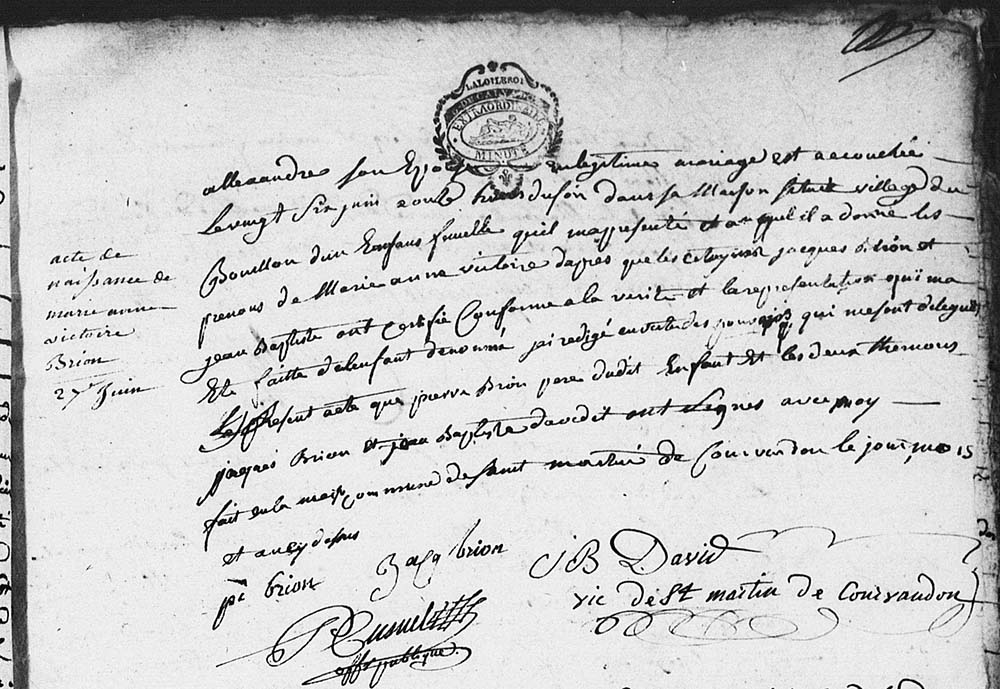 LA LOI LE ROI
EXTRAORDINAIRE
MINUTE
allexandre son Epouse en legitime mariage est acouchée
le vingt six juin a onle heures du soir dans sa Maison situee village du
Bouillon d'un Enfans fumelle qu'il ma presenté et auquel il a donne les
prenoms de Marie anne victoire dapres que les citoyens jacques Brion et
jean Baptiste ont certifié Conforme a la verité et la representation qui ma
Ete faitte de lenfant denommé jai redigé en vertu des pouvoirs qui me sont delegués
Le present acte que pierre Brion pere dudit Enfant et les deux themoins
jacques Brion et jean Baptiste david it ont signes avec moy
fait en la maison commune de saint martin de Courvandon le jour mois
et an cy dessus
acte de
naissance de
marie anne
victoire
Brion
27 Juin
pe brion
Jacq brion
J B David
vic de St martin de Courvaudon
offr publique